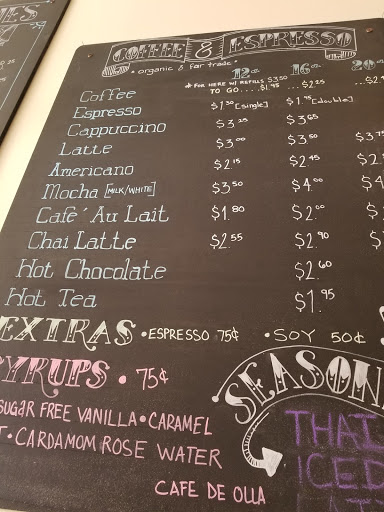 COFFEE & ESPRESSO
• organic & fair trade •
12oz 16oz 20oz
Coffee *FOR HERE W/ REFILLS $3.50
TO GO.....$1.95 ...$2.25 ...$2.
Espresso $1.50 [single] $1.95 [double]
Cappuccino $3.25 $3.65
Latte $3.00 $3.50 $3.7
Americano $2.15 $2.45 $2.
Mocha [MILK/WHITE] $3.50 $4.00 $4
Café Au Lait $1.80 $2.00 $
Chai Latte $2.55 $2.90 $3
Hot Chocolate $2.60
Hot Tea $1.95
EXTRAS • ESPRESSO 75¢ • SOY 50¢ •
SYRUPS • 75¢
SUGAR FREE VANILLA • CARAMEL
T • CARDAMOM ROSE WATER
CAFE DE OLLA
SEASON
THAI
ICED